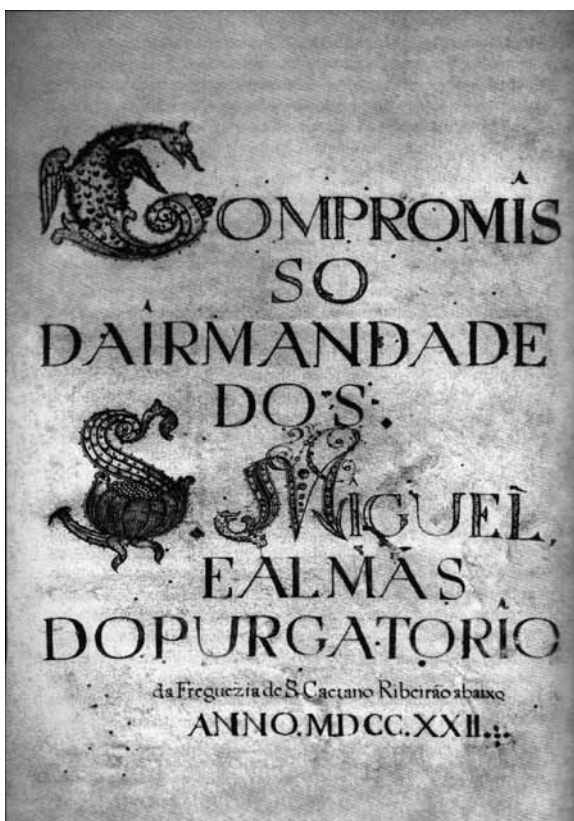 COMPROMIS
SO
DAIRMANDADE
DOS.
S. MIGUEL,
EALMAS
DOPURGATORIO
da Freguezia de S. Caetano Ribeirão abaixo
ANNO.MDCC.XXII.